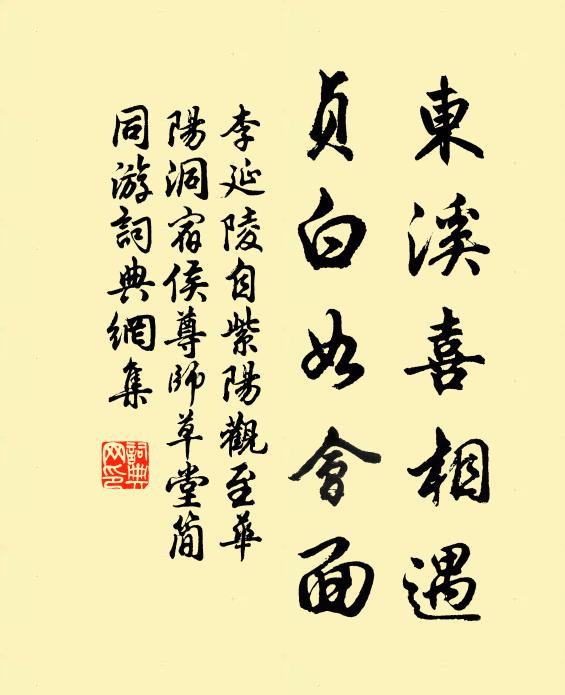 東溪喜相遇
貞白如會面
李延陵自紫陽觀至華
陽洞宿侯尊師草堂簡
同游詞典網集
詞典
网印